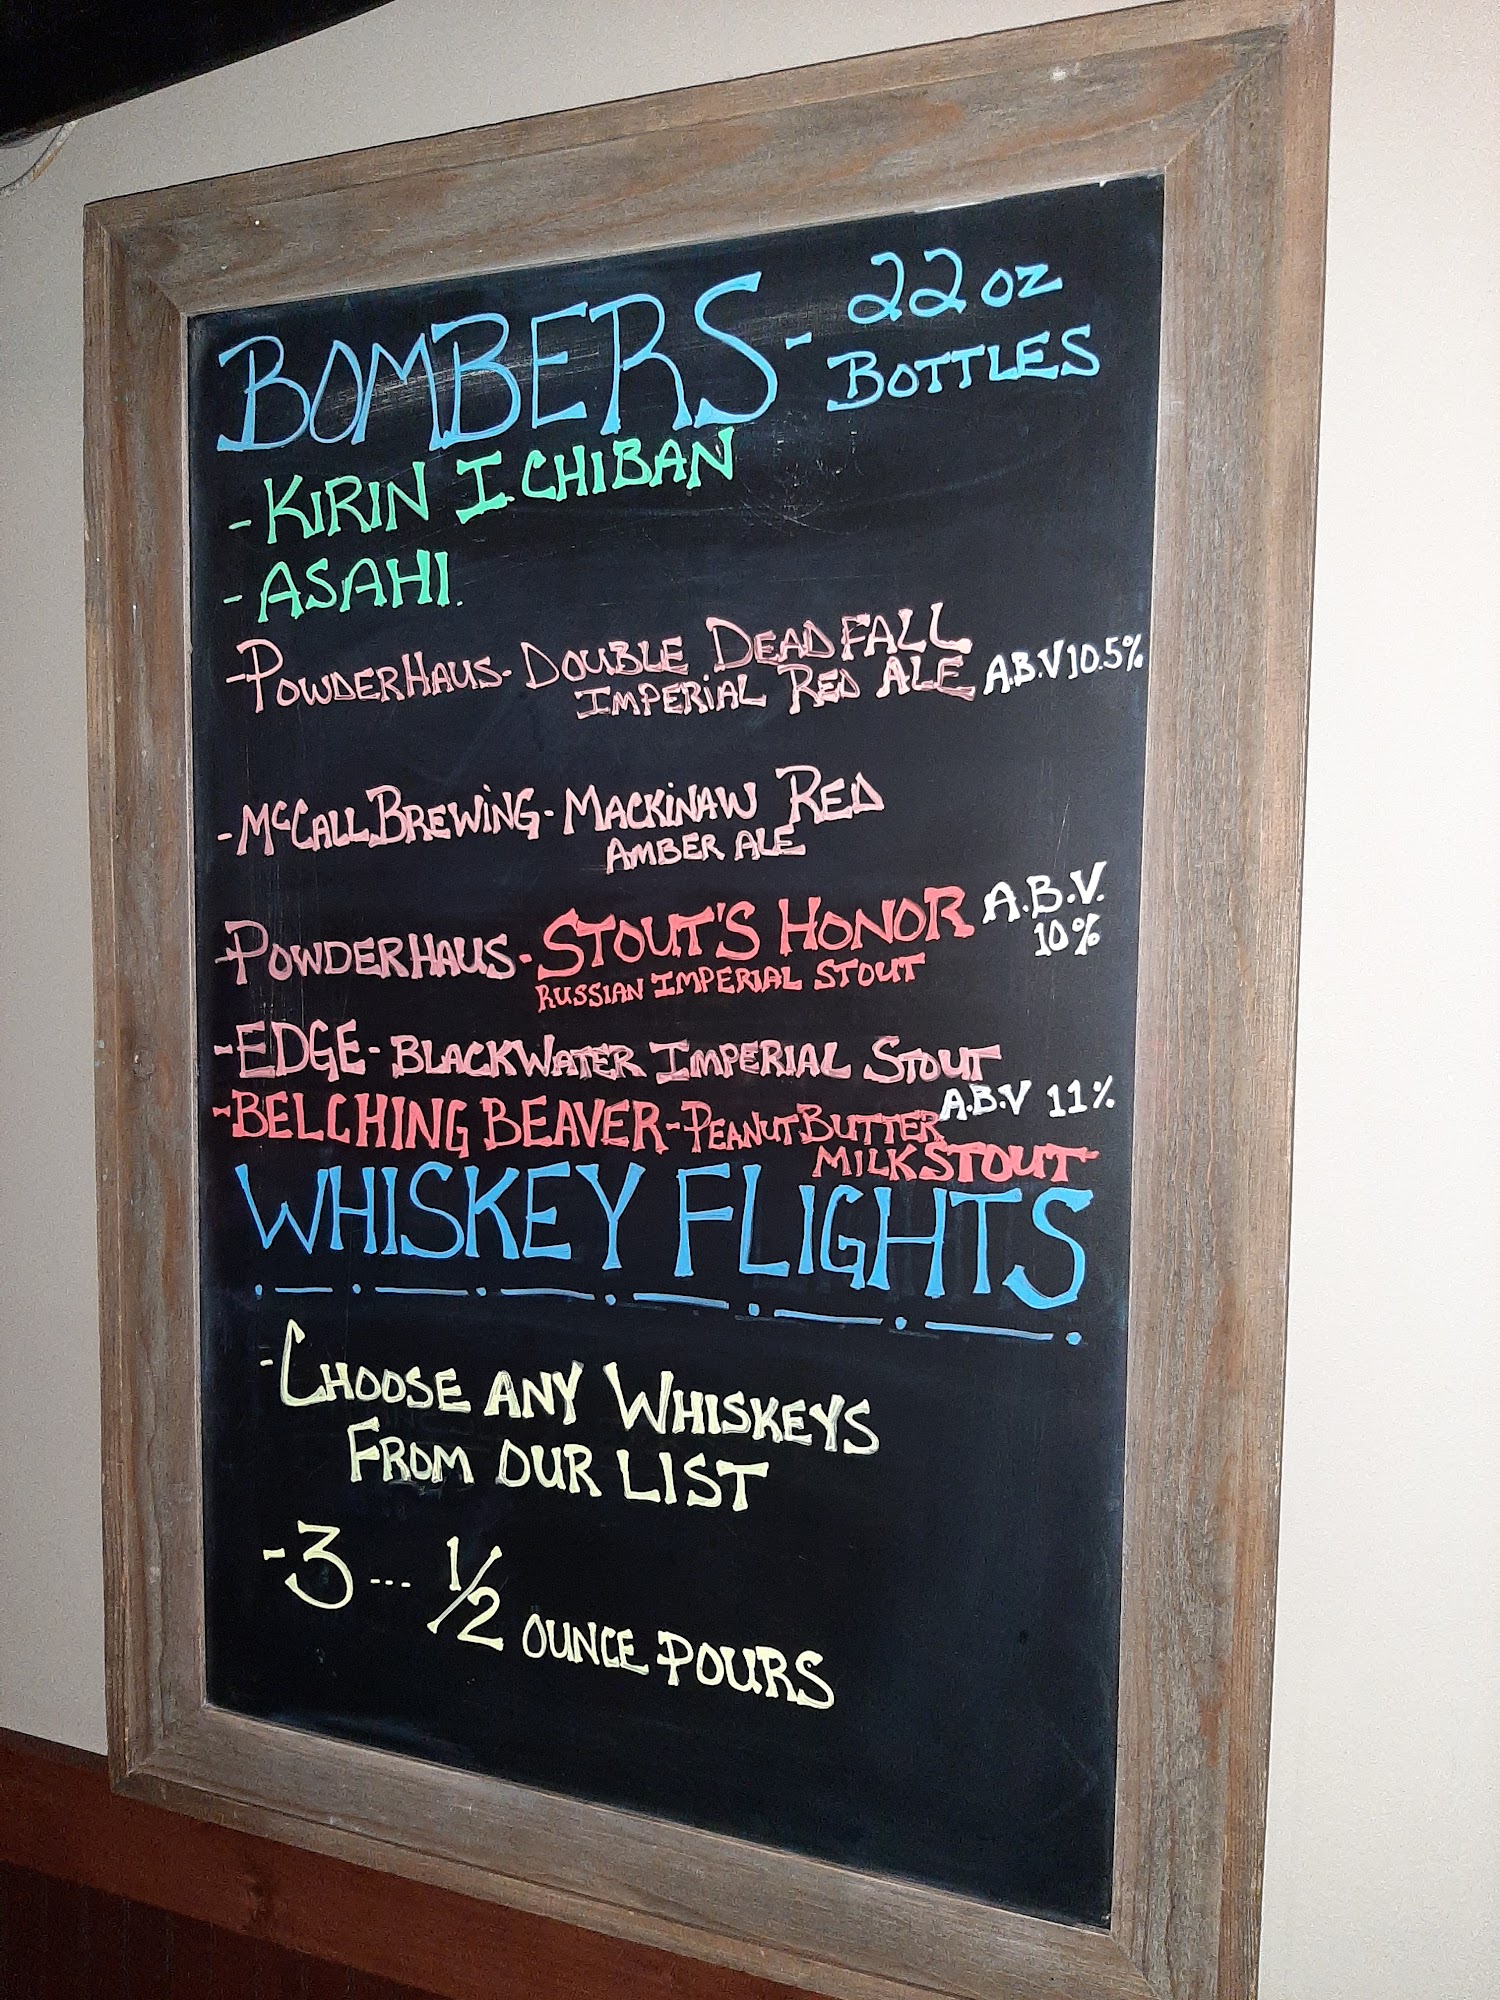 BOMBERS - 22 oz
BOTTLES
- KIRIN I.CHIBAN
- ASAHI.
- POWDERHAUS - DOUBLE DEADFALL
IMPERIAL RED ALE A.B.V 10.5%
- McCALL BREWING - MACKINAW RED
AMBER ALE
- POWDERHAUS - STOUT'S HONOR A.B.V.
10%
RUSSIAN IMPERIAL STOUT
- EDGE - BLACKWATER IMPERIAL STOUT
A.B.V 11%
- BELCHING BEAVER - PEANUT BUTTER
MILK STOUT
WHISKEY FLIGHTS
- CHOOSE ANY WHISKEYS
FROM OUR LIST
- 3 ... 1/2 OUNCE POURS